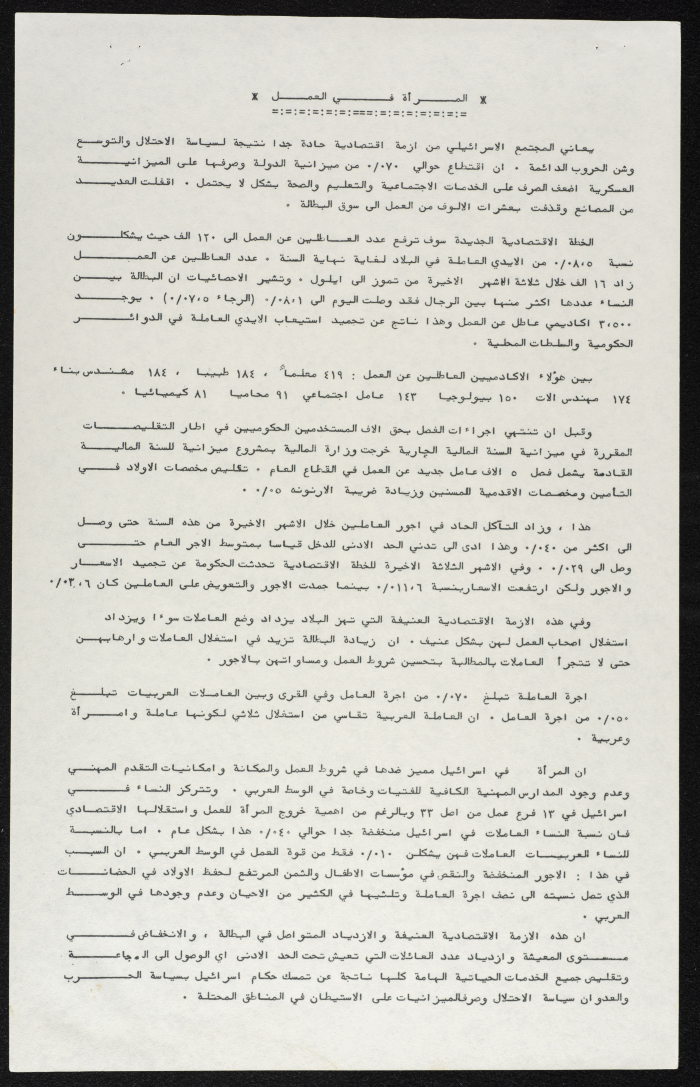 * المـــرأة فــــي العمـــل *
يعاني المجتمع الاسرائيلي من ازمة اقتصادية حادة جدا نتيجة لسياسة الاحتلال والتوسـع
وشن الحروب الدائمة . ان اقتطاع حوالي ٠/٠٧٠ من ميزانية الدولة وصرفها على الميزانيـــة
العسكرية اضعف الصرف على الخدمات الاجتماعية والتعليم والصحة بشكل لا يحتمل . اقفلت العديـــد
من المصانع وقذفت بعشرات الالوف من العمل الى سوق البطالة .
الخطة الاقتصادية الجديدة سوف ترفع عدد العــاطلين عن العمل الى ١٢٠ الف حيث يشكلـــون
نسبة ٠/٠٨،٥ من الايدي العاملة في البلاد لغاية نهاية السنة . عدد العاطلين عن العمـــل
زاد ١٦ الف خلال ثلاثة الاشهر الاخيرة من تموز الى ايلول . وتشير الاحصائيات ان البطالة بيـــن
النساء عددها اكثر منها بين الرجال فقد وصلت اليوم الى ٠/٠٨،١ (الرجاء ٠/٠٧،٥) . يوجـــد
٣،٥٠٠ اكاديمي عاطل عن العمل وهذا ناتج عن تجميد استيعاب الايدي العاملة في الدوائـــر
الحكومية والسلطات المحلية .
بين هؤلاء الاكاديميين العاطلين عن العمل : ٤١٩ معلماً ، ١٨٤ طبيبا ، ١٨٤ مهندس بناء
١٧٤ مهندس الات ١٥٠ بيولوجيا ١٤٣ عامل اجتماعي ٩١ محاميا ٨١ كيميائيا .
وقبل ان تنتهي اجراءات الفصل بحق الاف المستخدمين الحكوميين في اطار التقليصـــات
المقررة في ميزانية السنة المالية الجارية خرجت وزارة المالية بمشروع ميزانية للسنة الماليـــة
القادمة يشمل فصل ٥ الاف عامل جديد عن العمل في القطاع العام . تقليص مخصصات الاولاد فـــي
التأمين ومخصصات الاقدمية للمسنين وزيادة ضريبة الارنونه ٠/٠٥ .
هذا ، وزاد التآكل الحاد في اجور العاملين خلال الاشهر الاخيرة من هذه السنة حتى وصــل
الى اكثر من ٠/٠٤٠ وهذا ادى الى تدني الحد الادنى للدخل قياسا بمتوسط الاجر العام حتـــى
وصل الى ٠/٠٢٩ . وفي الاشهر الثلاثة الاخيرة للخطة الاقتصادية تحدثت الحكومة عن تجميد الاسعــار
والاجور ولكن ارتفعت الاسعاربنسبة ٠/٠١١،٦ بينما جمدت الاجور والتعويض على العاملين كان ٠/٠٣،٦
وفي هذه الازمة الاقتصادية العنيفة التي تهز البلاد يزداد وضع العاملات سوءا ويزداد
استغلال اصحاب العمل لهن بشكل عنيف . ان زيادة البطالة تزيد في استغلال العاملات وارهابهـــن
حتى لا تتجرأ العاملات بالمطالبة بتحسين شروط العمل ومساواتهن بالاجور .
اجرة العاملة تبلغ ٠/٠٧٠ من اجرة العامل وفي القرى وبين العاملات العربيات تبلـــغ
٠/٠٥٠ من اجرة العامل . ان العاملة العربية تقاسي من استغلال ثلاثي لكونها عاملة وامـــرأة
وعربية .
ان المرأة في اسرائيل مميز ضدها في شروط العمل والمكانة وامكانيات التقدم المهنـــي
وعدم وجود المدارس المهنية الكافية للفتيات وخاصة في الوسط العربي . وتتركز النساء فـــي
اسرائيل في ١٣ فرع عمل من اصل ٣٣ وبالرغم من اهمية خروج المرأة للعمل واستقلالها الاقتصادي
فان نسبة النساء العاملات في اسرائيل منخفضة جدا حوالي ٠/٠٤٠ هذا بشكل عام . اما بالنسبـة
للنساء العربيــات العاملات فهن يشكلن ٠/٠١٠ فقط من قوة العمل في الوسط العربـي . ان السبب
في هذا : الاجور المنخفضة والنقص في مؤسسات الاطفال والثمن المرتفع لحفظ الاولاد في الحضانـــات
الذي تصل نسبته الى نصف اجرة العاملة وثلثيها في الكثير من الاحيان وعدم وجودها في الوســـط
العربي .
ان هذه الازمة الاقتصادية العنيفة والازدياد المتواصل في البطالة ، والانخفاض فـــي
مستــوى المعيشة وازدياد عدد العائلات التي تعيش تحت الحد الادنى اي الوصول الى المجاعــة
وتقليص جميع الخدمات الحياتية الهامة كلها ناتجة عن تمسك حكام اسرائيل بسياسة الحـــرب
والعدوان سياسة الاحتلال وصرفالميزانيات على الاستيطان في المناطق المحتلة .